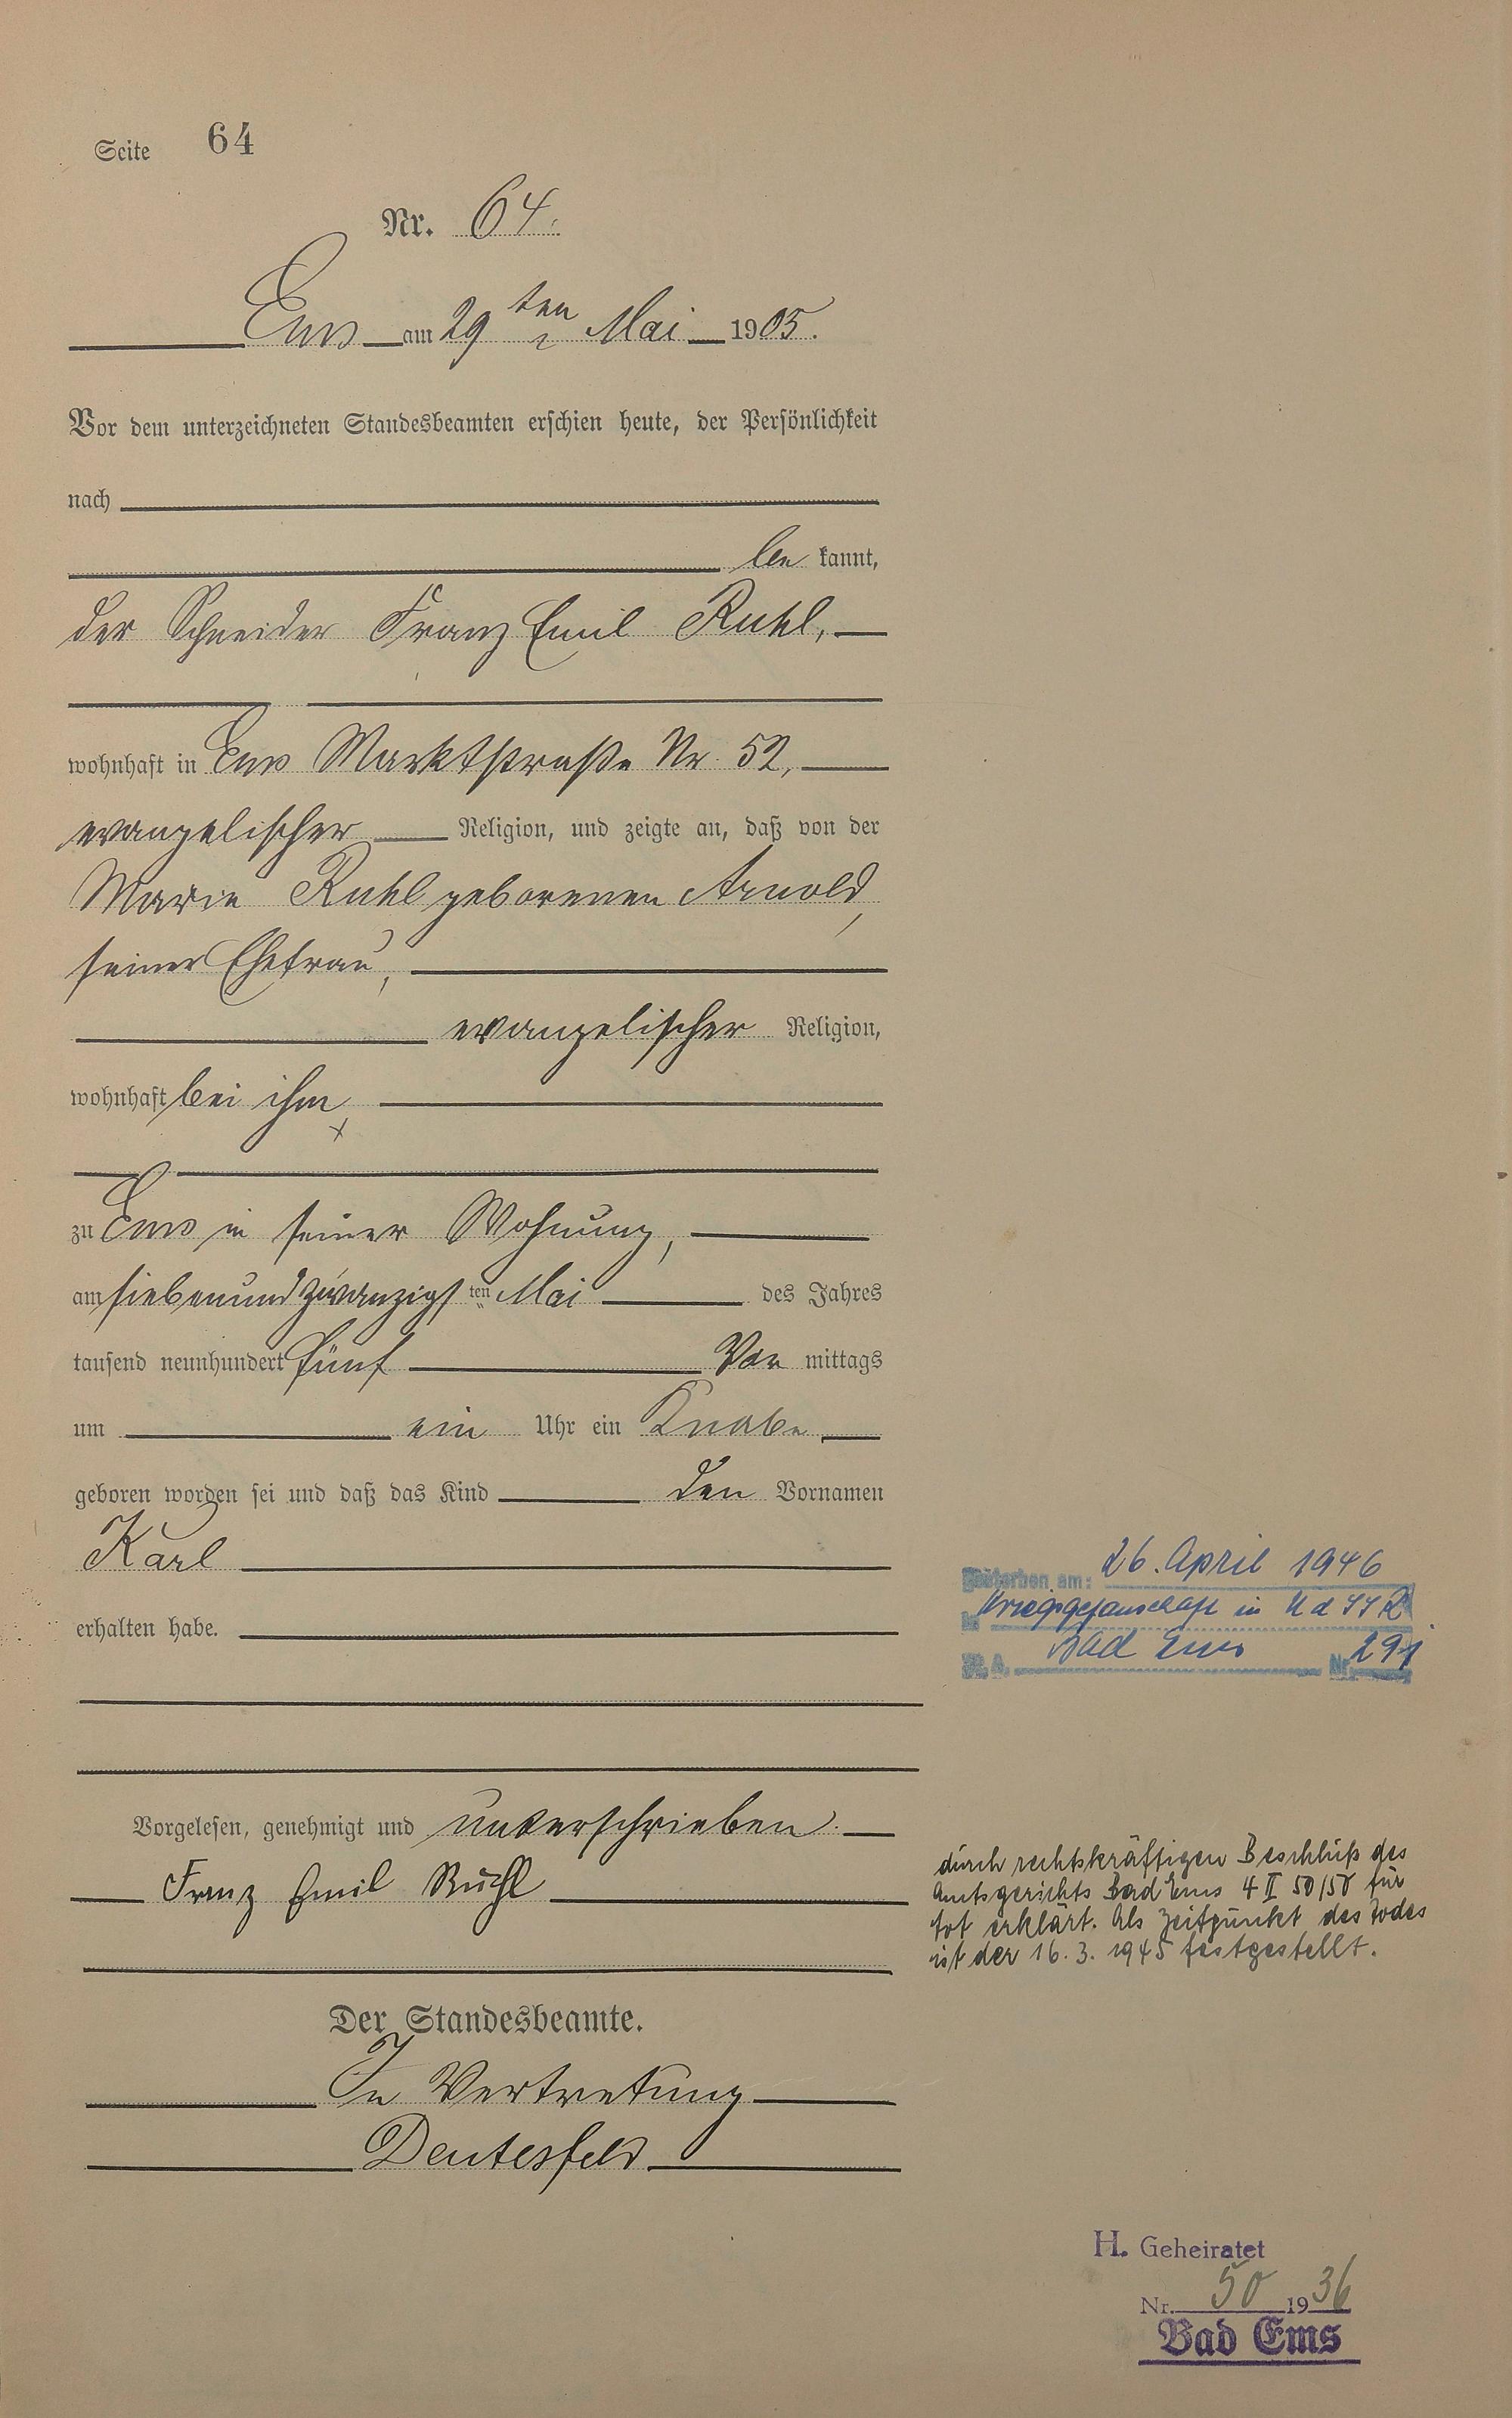 Seite 64
Nr. 64.
Ems am 29ten Mai 1905.
Vor dem unterzeichneten Standesbeamten erschien heute, der Persönlichkeit
nach
be kannt,
der Schneider Franz Emil Ruhl,
wohnhaft in Ems Marktstraße Nr. 52,
evangelischer Religion, und zeigte an, daß von der
Marie Ruhl geborenen Arnold,
seiner Ehefrau,
evangelischer Religion,
wohnhaft bei ihm,
zu Ems in seiner Wohnung,
am siebenundzwanzigsten Mai des Jahres
tausend neunhundert fünf Vor mittags
um ein Uhr ein Knabe
geboren worden sei und daß das Kind den Vornamen
Karl
erhalten habe.
Vorgelesen, genehmigt und unterschrieben.
Franz Emil Ruhl
Der Standesbeamte.
In Vertretung
Deutesfeld
Gestorben am: 26. April 1946
in Kriegsgefanschaft in UdSSR
St. A. Bad Ems Nr.
durch rechtskräftigen Beschluß des
Amtsgerichts Bad Ems 4 II 50/50 für
tot erklärt. Als Zeitpunkt des Todes
ist der 16.3.1945 festgestellt.
H. Geheiratet
Nr. 50 1936
Bad Ems